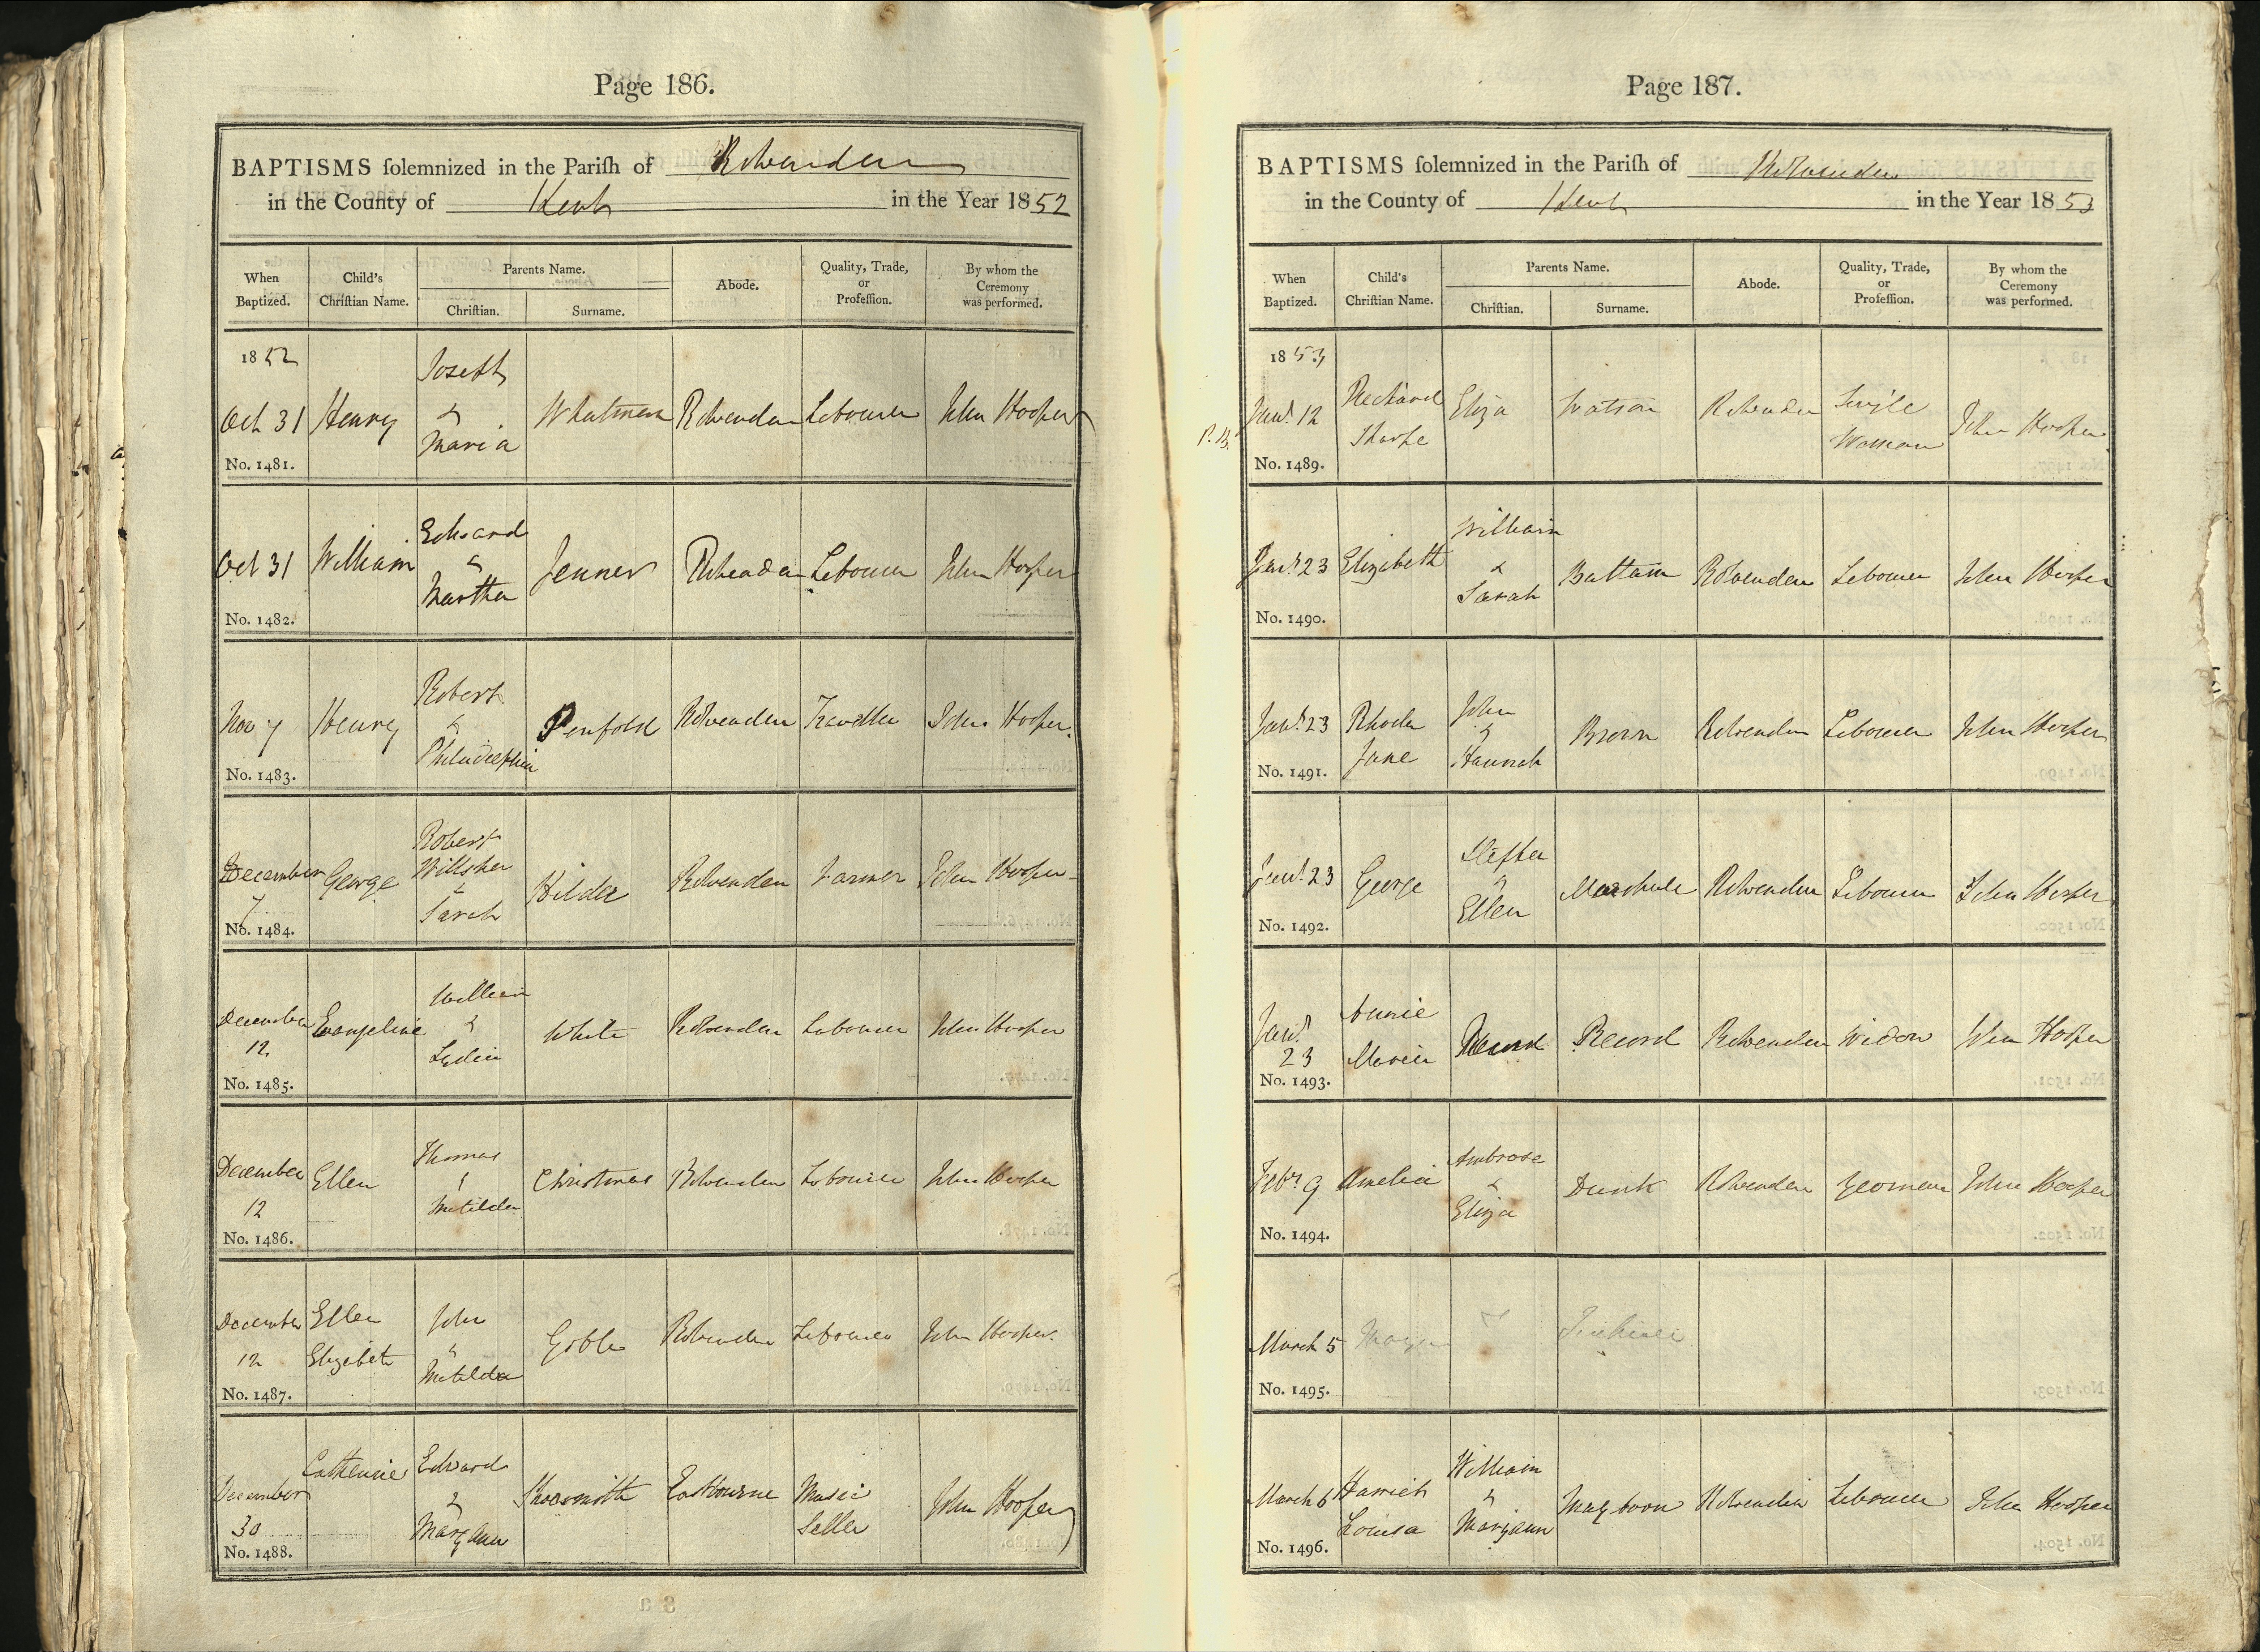 Page 186.
BAPTISMS solemnized in the Parish of Rolvenden
in the County of Kent in the Year 1852
When Baptized. Child's Christian Name. Parents Name. Christian. Surname. Abode. Quality, Trade, or Profession. By whom the Ceremony was performed.
1852
Oct 31 Henry Joseph & Maria Whatman Rolvenden Labourer John Hooper
No. 1481.
Oct 31 William Edward & Martha Jenner Rolvenden Labourer John Hooper
No. 1482.
Nov 7 Henry Robert & Philadelphia Penfold Rolvenden Traveller John Hooper.
No. 1483.
December 7 George Robert Willsher & Sarah Hilder Rolvenden Farmer John Hooper
No. 1484.
December 12 Evangeline William & Lydia White Rolvenden Labourer John Hooper
No. 1485.
December 12 Ellen Thomas & Matilda Christmas Rolvenden Labourer John Hooper
No. 1486.
December 12 Ellen Elizabeth John & Matilda Goble Rolvenden Labourer John Hooper.
No. 1487.
December 30 Catherine Edward & Mary Ann Shoesmith Eastbourne Music Seller John Hooper
No. 1488.
Page 187.
BAPTISMS solemnized in the Parish of Rolvenden
in the County of Kent in the Year 1853
When Baptized. Child's Christian Name. Parents Name. Christian. Surname. Abode. Quality, Trade, or Profession. By whom the Ceremony was performed.
1853
P.B. Jany. 12 Richard Tharpe Eliza Watson Rolvenden Single Woman John Hooper
No. 1489.
Jany. 23 Elizabeth William & Sarah Battam Rolvenden Labourer John Hooper
No. 1490.
Jany. 23 Rhoda Jane John & Hannah Brown Rolvenden Labourer John Hooper
No. 1491.
Jany. 23 George & Ellen Rolvenden Labourer John Hooper
No. 1492.
Jany. 23 Annie Maria Record Rolvenden Widow John Hooper
No. 1493.
Feby. 9 Amelia Ambrose & Eliza Dunk Rolvenden Yeoman John Hooper
No. 1494.
March 5
No. 1495.
March 6 Harriet Louisa William & Maryann Maytum Rolvenden Labourer John Hooper
No. 1496.